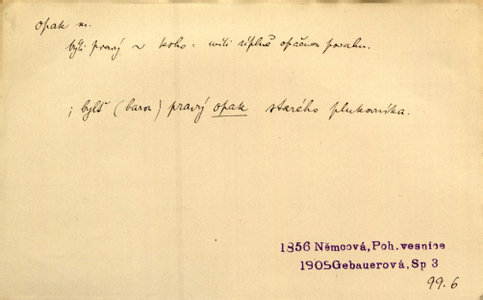 opak m.
býti pravý ~ koho: míti úplně opačnou povahu.
; bylť (baron) pravý opak starého plukovníka.
1856 Němcová, Poh. vesnice
1905 Gebauerová, Sp 3
99.6